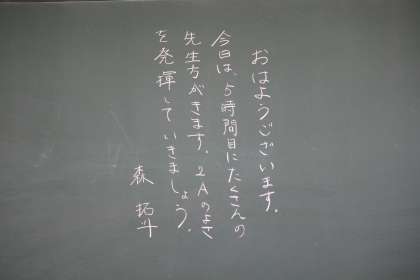 おはようございます。
今日は、5時間目にたくさんの
先生方がきます。2Aのよさ
を発揮していきましょう。
森 拓斗